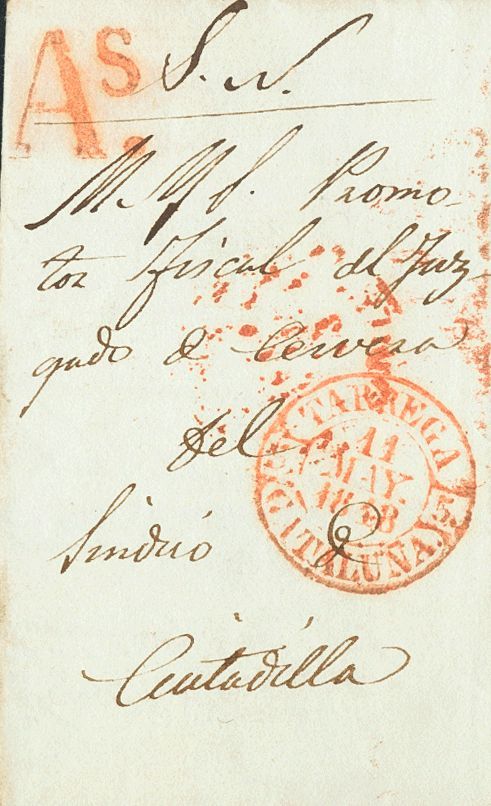 As.
S. N.
M. Y. S. Promo-
tor Fiscal del Juz-
gado de Cervera
del
Sindico de
Ciutadilla
TARREGA
11
MAY.
CATALUÑA